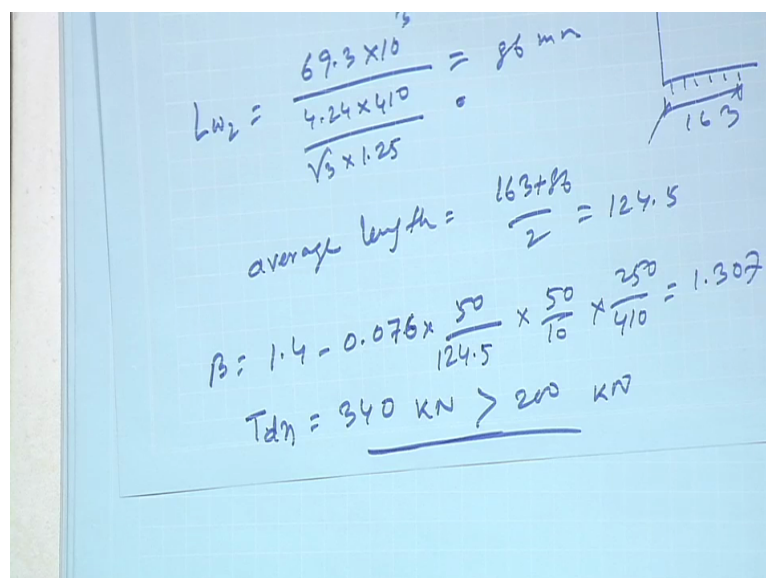 Lw₂ = 69.3 × 10³ / (4.24 × 410 / √3 × 1.25) = 86 mm
163
average length = 163+86 / 2 = 124.5
β = 1.4 - 0.076 × 50/124.5 × 50/10 × 250/410 = 1.307
Tdn = 340 KN > 200 KN